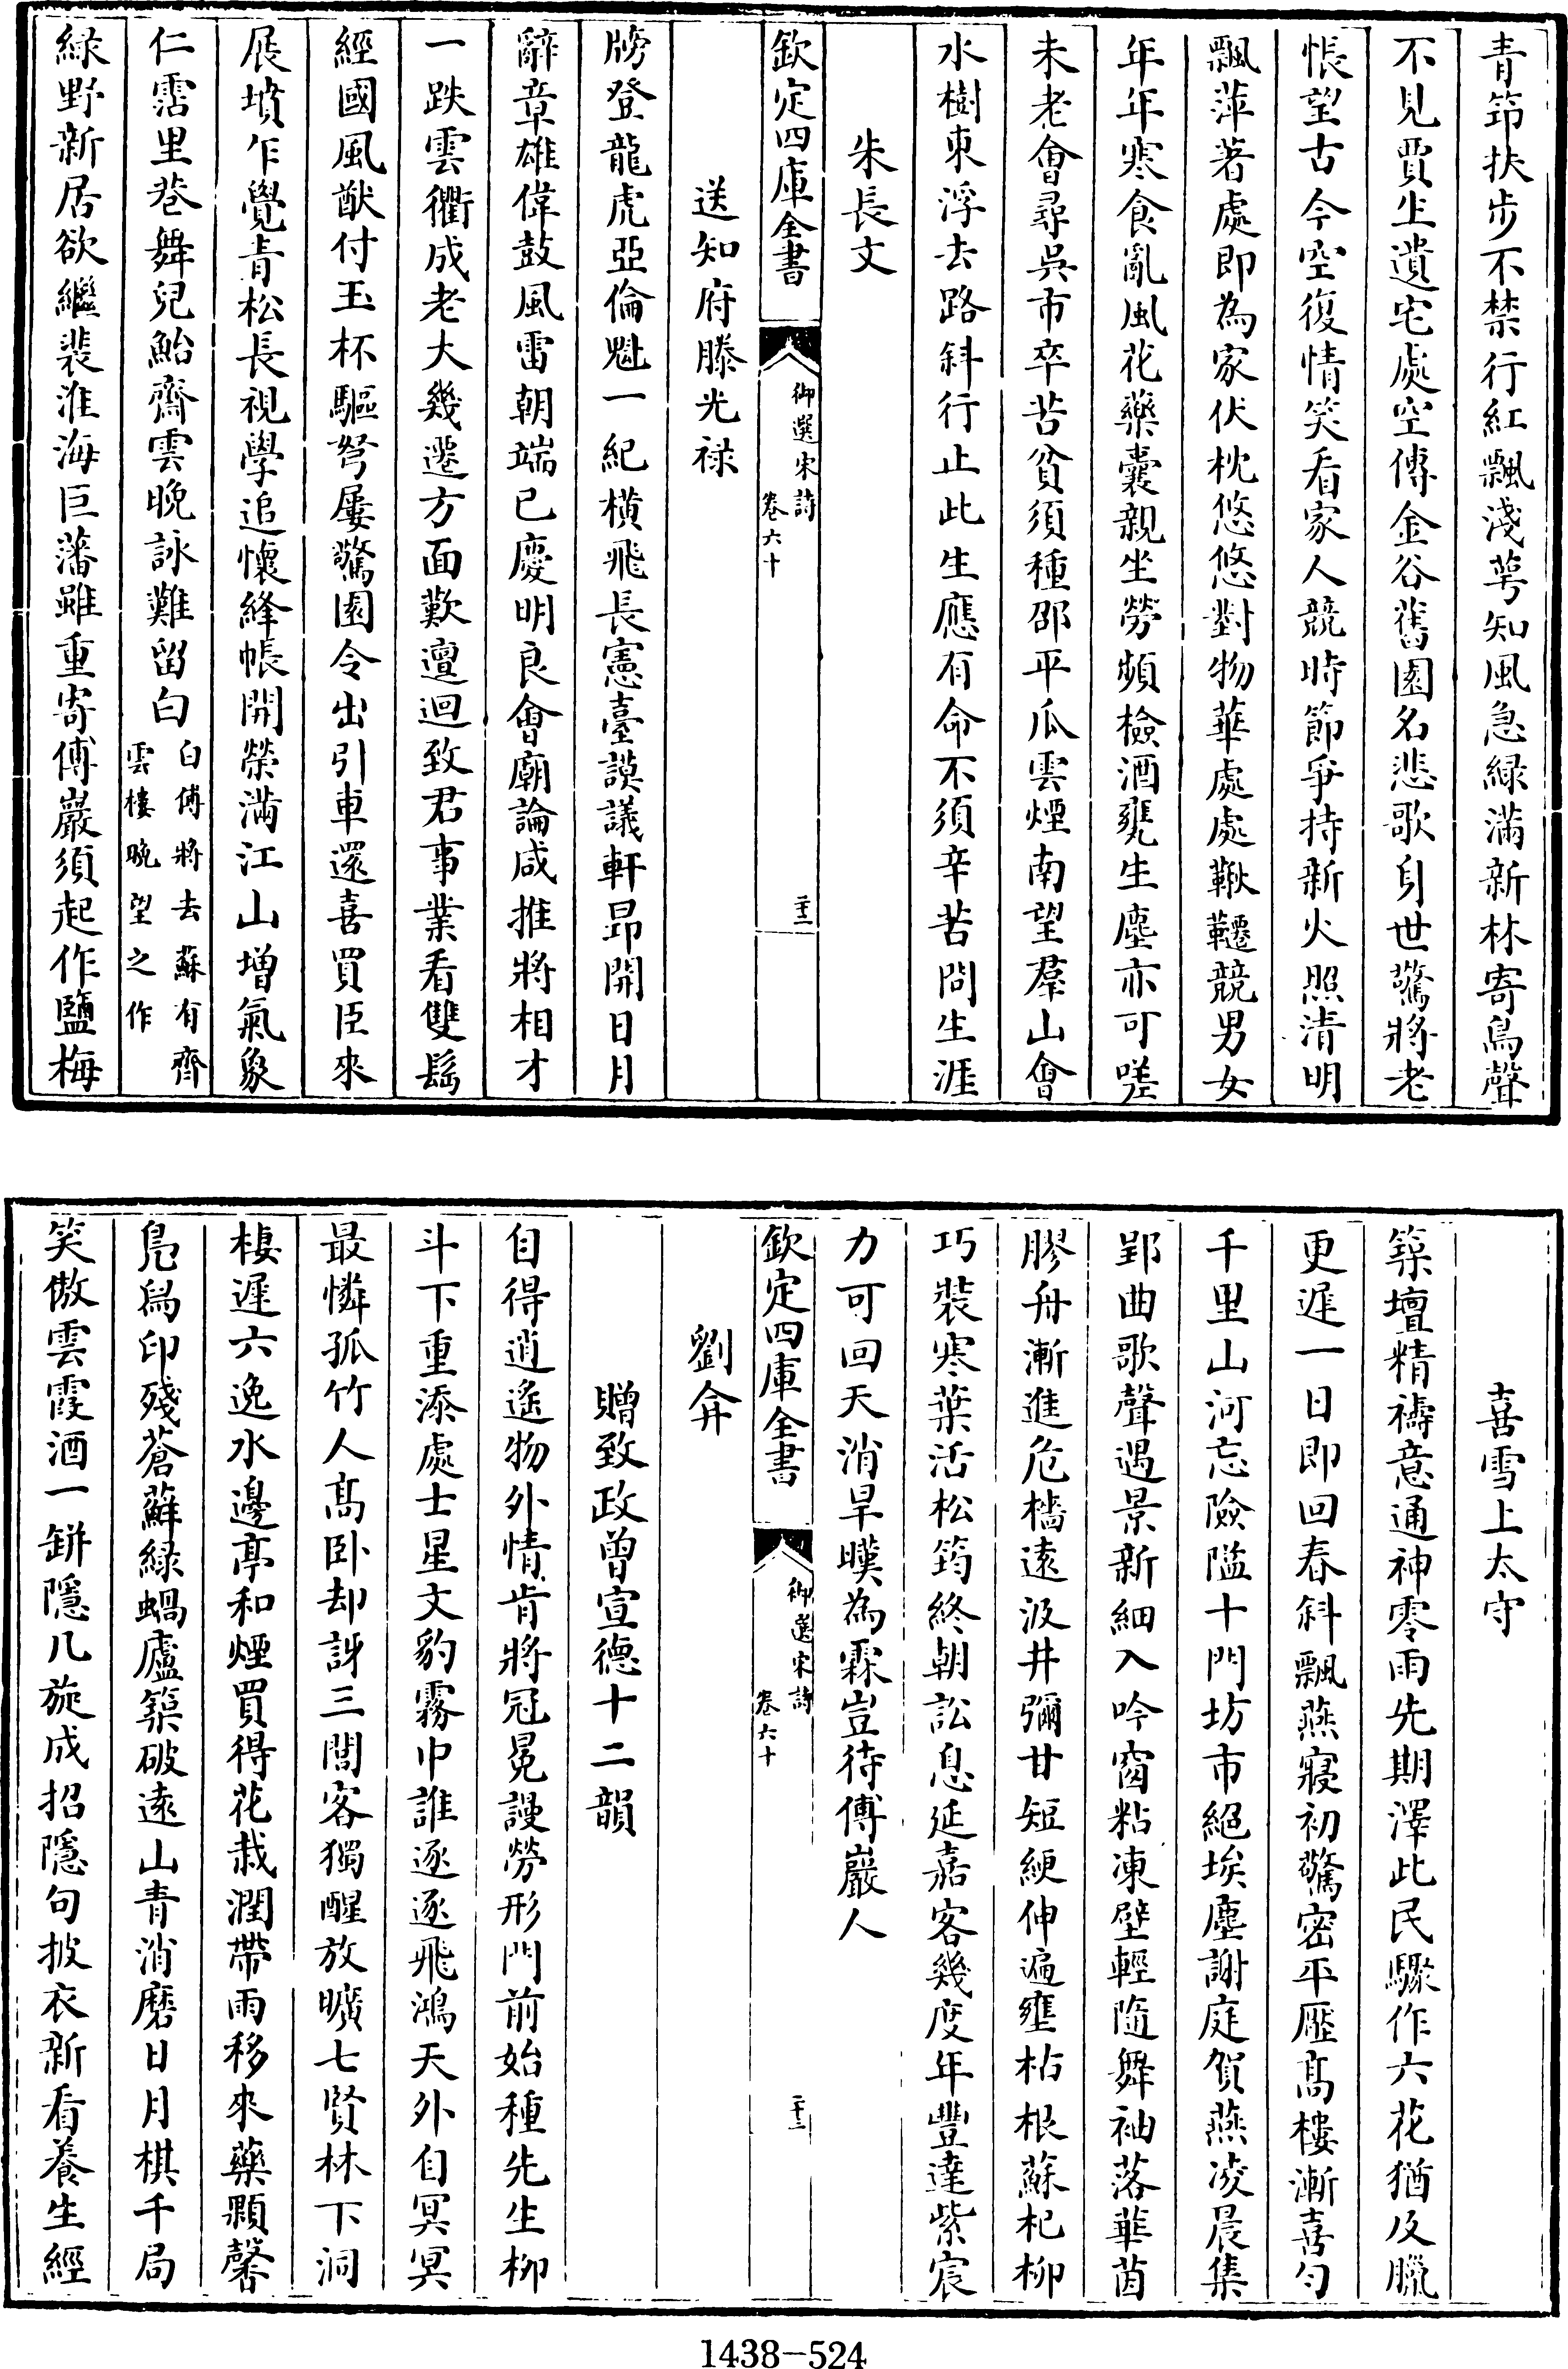 青筇扶步不禁行紅飄淺萼知風急緑滿新林寄鳥聲
不見賈生遺宅處空傳金谷舊園名悲歌身世驚將老
悵望古今空復情笑看家人競時節爭持新火照清明
飄萍著處即為家伏枕悠悠對物華處處鞦韆競男女
年年寒食亂風花藥囊親坐勞頻檢酒甕生塵亦可嗟
未老會尋吳市卒苦貧須種邵平瓜雲煙南望羣山會
水樹東浮去路斜行止此生應有命不須辛苦問生涯
朱長文
欽定四庫全書
御選宋詩
卷六十
二十二
送知府滕光禄
牓登龍虎亞倫魁一紀横飛長憲臺謨議軒昂開日月
辭章雄偉鼓風雷朝端已慶明良會廟論咸推將相才
一跌雲衢成老大幾遷方面歎邅迴致君事業看雙髩
經國風猷付玉杯驅弩屢驚園令出引車還喜買臣來
展墳乍覺青松長視學追懷絳帳開榮滿江山增氣象
仁霑里巷舞兒鮐齋雲晚詠難留白
白傅將去蘇有齊
雲樓晚望之作
緑野新居欲繼裴淮海巨藩雖重寄傅巖須起作鹽梅
喜雪上太守
築壇精禱意通神零雨先期澤此民驟作六花猶及臘
更遲一日即回春斜飄燕寢初驚密平壓髙樓漸喜勻
千里山河忘險隘十門坊市絕埃塵謝庭賀燕凌晨集
郢曲歌聲遇景新細入吟窗粘凍壁輕隨舞袖落華茵
膠舟漸進危檣遠汲井彌甘短綆伸遍壅枯根蘇杞柳
巧裝寒葉活松筠終朝訟息延嘉客幾度年豐達紫宸
力可回天消旱暵為霖豈待傅巖人
欽定四庫全書
御選宋詩
卷六十
二十二
劉弇
贈致政曾宣德十二韻
自得逍遙物外情肯將冠冕謾勞形門前始種先生柳
斗下重添處士星文豹霧中誰逐逐飛鴻天外自冥冥
最憐孤竹人髙卧却訝三閭客獨醒放曠七賢林下洞
棲遲六逸水邊亭和煙買得花栽潤帶雨移來藥顆馨
鳬舄印殘蒼蘚緑蝸廬築破遠山青消磨日月棋千局
笑傲雲霞酒一缾隱几旋成招隱句披衣新看養生經
1438-524